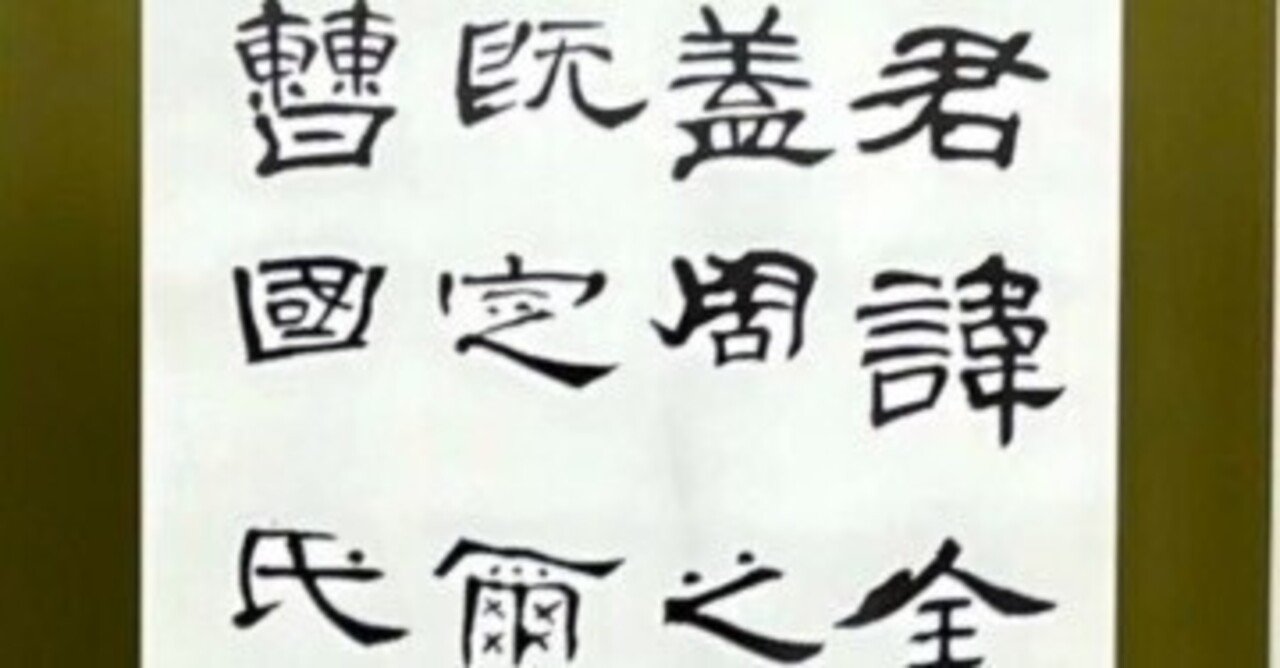 君諱全
盖周之
既定爾
曹國氏